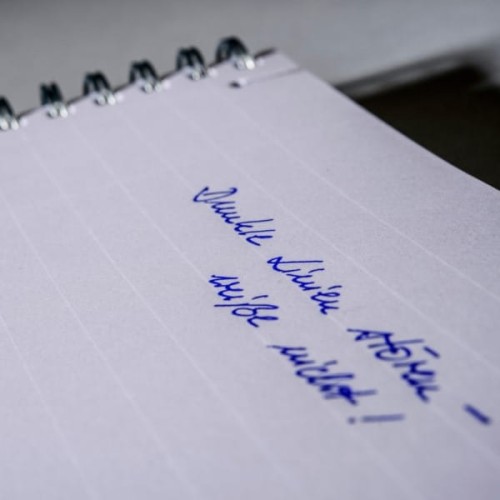 Dunkle Linien stören -
weiße nicht!